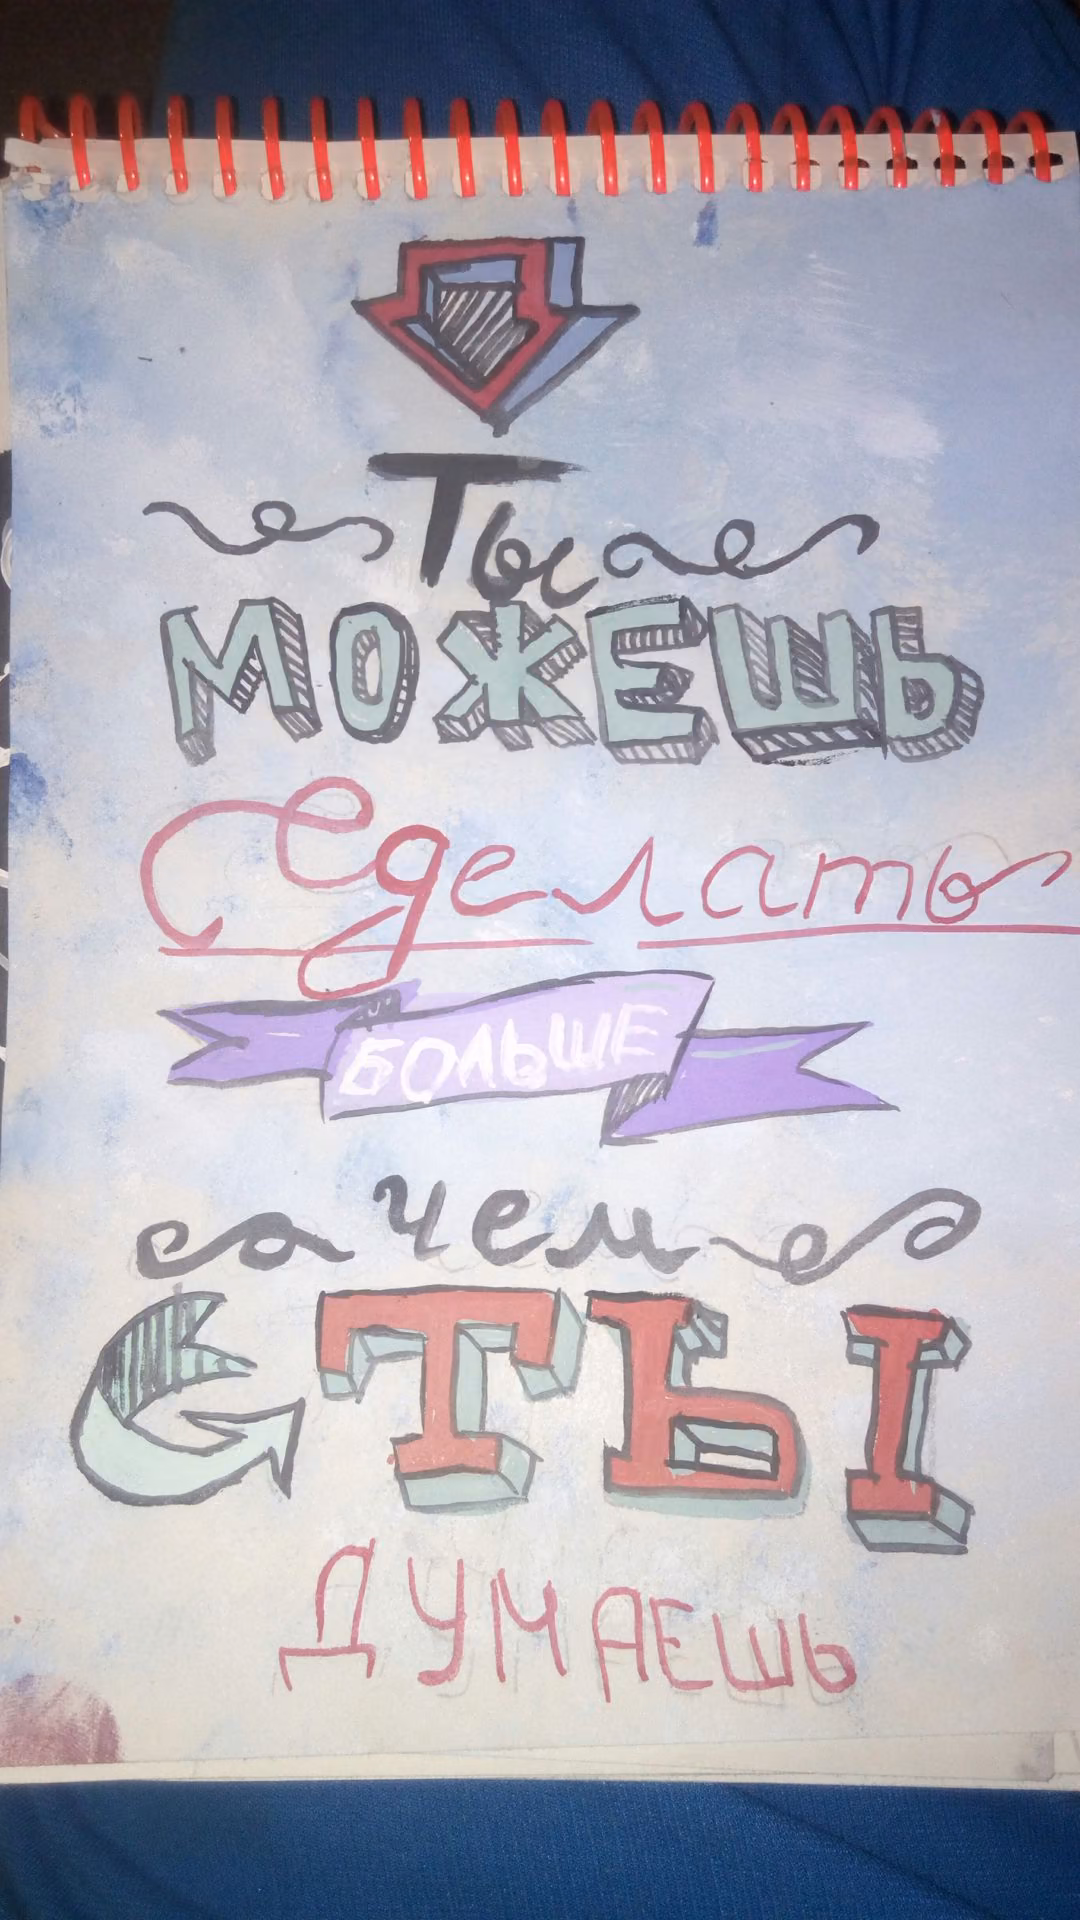 Ты
МОЖЕШЬ
Сделать
БОЛЬШЕ
чем
ТЫ
ДУМАЕШЬ